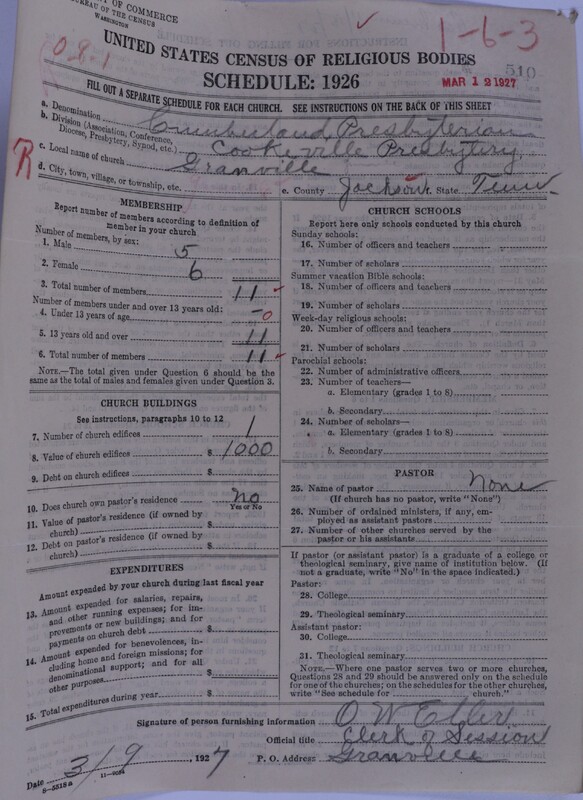 OF COMMERCE
BUREAU OF THE CENSUS
WASHINGTON
1-6-3
510
UNITED STATES CENSUS OF RELIGIOUS BODIES
SCHEDULE: 1926
MAR 12 1927
FILL OUT A SEPARATE SCHEDULE FOR EACH CHURCH. SEE INSTRUCTIONS ON THE BACK OF THIS SHEET
a. Denomination Cumberland Presbyterian
b. Division (Association, Conference, Diocese, Presbytery, Synod, etc.) Cookeville Presbytery
R
c. Local name of church Granville
d. City, town, village, or township, etc.
e. County Jackson f. State Tenn.
MEMBERSHIP
Report number of members according to definition of
member in your church
Number of members, by sex:
1. Male 5
2. Female 6
3. Total number of members 11
Number of members under and over 13 years old:
4. Under 13 years of age -0
5. 13 years old and over 11
6. Total number of members 11
NOTE.—The total given under Question 6 should be the
same as the total of males and females given under Question 3.
CHURCH BUILDINGS
See instructions, paragraphs 10 to 12
7. Number of church edifices 1
8. Value of church edifices $ 1000
9. Debt on church edifices $
10. Does church own pastor's residence No
Yes or No
11. Value of pastor's residence (if owned by
church) $
12. Debt on pastor's residence (if owned by
church) $
EXPENDITURES
Amount expended by your church during last fiscal year
13. Amount expended for salaries, repairs,
and other running expenses; for im-
provements or new buildings; and for
payments on church debt $
14. Amount expended for benevolences, in-
cluding home and foreign missions; for
denominational support; and for all
other purposes $
15. Total expenditures during year $
CHURCH SCHOOLS
Report here only schools conducted by this church
Sunday schools:
16. Number of officers and teachers
17. Number of scholars
Summer vacation Bible schools:
18. Number of officers and teachers
19. Number of scholars
Week-day religious schools:
20. Number of officers and teachers
21. Number of scholars
Parochial schools:
22. Number of administrative officers
23. Number of teachers—
a. Elementary (grades 1 to 8)
b. Secondary
24. Number of scholars—
a. Elementary (grades 1 to 8)
b. Secondary
PASTOR
25. Name of pastor None
(If church has no pastor, write "None")
26. Number of ordained ministers, if any, em-
ployed as assistant pastors
27. Number of other churches served by the
pastor or his assistants
If pastor (or assistant pastor) is a graduate of a college or
theological seminary, give name of institution below. (If
not a graduate, write "No" in the space indicated.)
Pastor:
28. College
29. Theological seminary
Assistant pastor:
30. College
31. Theological seminary
NOTE.—Where one pastor serves two or more churches,
Questions 28 and 29 should be answered only on the schedule
for one of the churches; on the schedules for the other churches,
write "See schedule for church."
Signature of person furnishing information O W
Official title Clerk of Session
Date 3/9, 1927 P. O. Address Granville
8-5518a